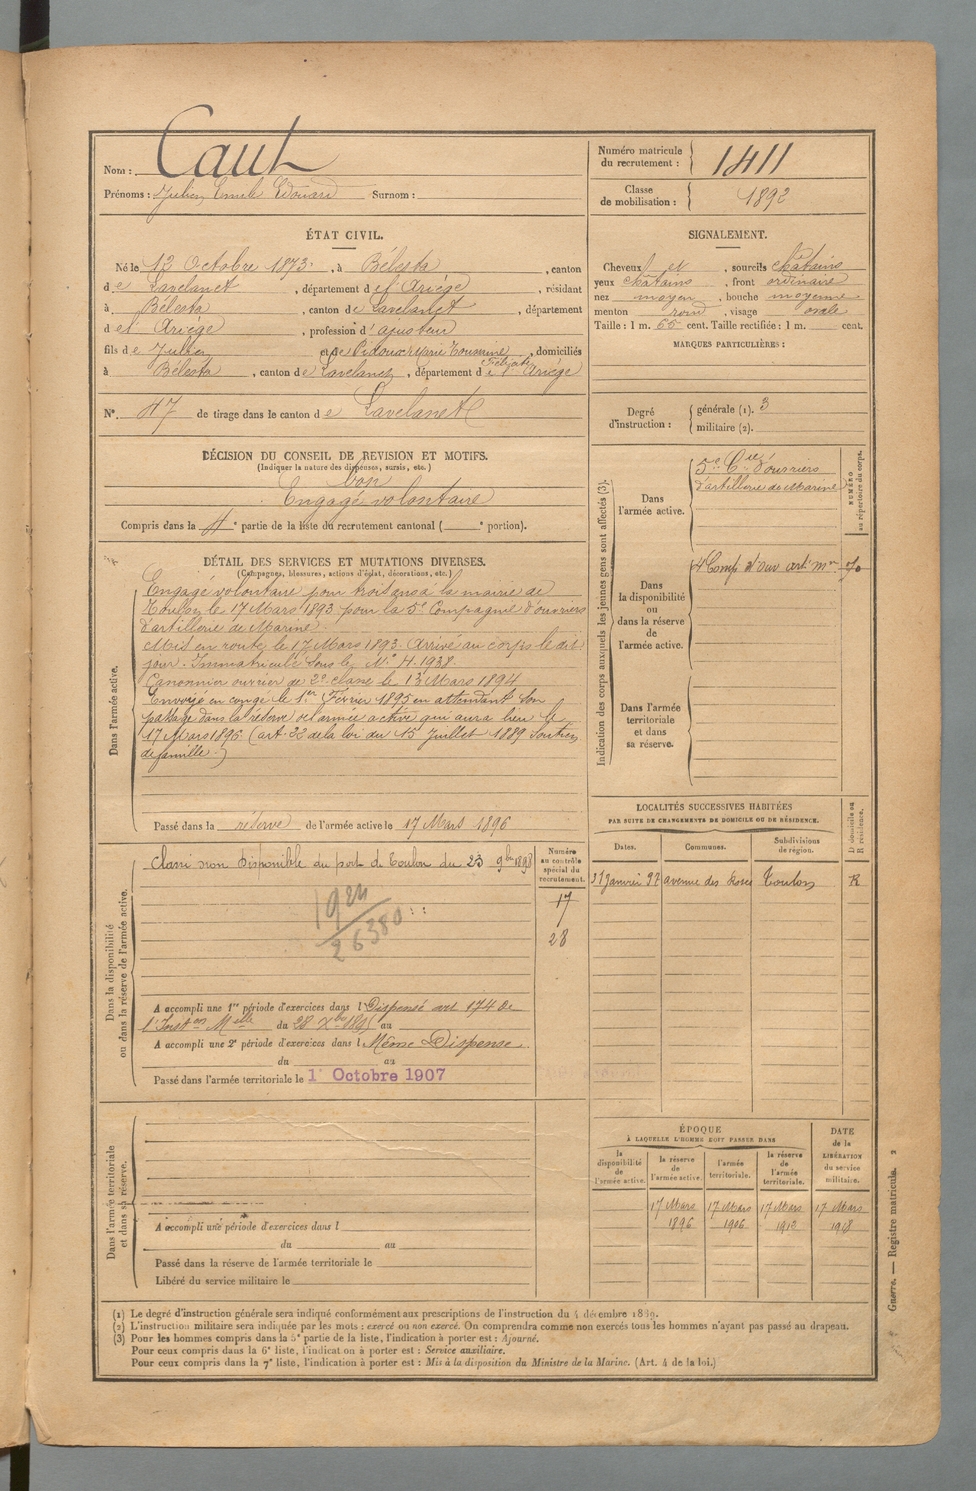 Nom : Caut
Prénoms : Julien Emile Edouard Surnom :
Numéro matricule du recrutement : 1411
Classe de mobilisation : 1892
ÉTAT CIVIL.
Né le 12 Octobre 1873, à Bélesta, canton
de Lavelanet, département de l'Ariége, résidant
à Bélesta, canton de Lavelanet, département
de l'Ariége, profession d'ajusteur
fils de Julien et de Pidoux Marie Toussaine Félicité, domiciliés
à Bélesta, canton de Lavelanet, département de l'Ariége
N° 47 de tirage dans le canton de Lavelanet
SIGNALEMENT.
Cheveux et, sourcils châtains
yeux châtains, front ordinaire
nez moyen, bouche moyenne
menton rond, visage ovale
Taille : 1 m. 66 cent. Taille rectifiée : 1 m. cent.
MARQUES PARTICULIÈRES :
Degré d'instruction : générale (1). 3
militaire (2).
DÉCISION DU CONSEIL DE REVISION ET MOTIFS.
(Indiquer la nature des dispenses, sursis, etc.)
bon
Engagé volontaire
Compris dans la 4e partie de la liste du recrutement cantonal ( e portion).
DÉTAIL DES SERVICES ET MUTATIONS DIVERSES.
(Campagnes, blessures, actions d'éclat, décorations, etc.)
Dans l'armée active.
Engagé volontaire pour trois ans à la mairie de
Toulon le 17 Mars 1893 pour la 5e Compagnie d'ouvriers
d'artillerie de Marine.
Mis en route le 17 Mars 1893. Arrivé au corps le dit
jour. Immatriculé sous le N° H. 1938.
Canonnier ouvrier de 2e classe le 13 Mars 1894
Envoyé en congé le 1er Février 1895 en attendant son
passage dans la réserve de l'armée active qui aura lieu le
17 Mars 1896 (art. 22 de la loi du 15 Juillet 1889 Soutien
de famille.)
Passé dans la réserve de l'armée active le 17 Mars 1896
Indication des corps auxquels les jeunes gens sont affectés (3).
NUMÉRO au répertoire du corps.
Dans l'armée active. 5e Cie d'ouvriers
d'artillerie de Marine
Dans la disponibilité ou dans la réserve de l'armée active. 4 Comp d'ouv art. mne 70
Dans l'armée territoriale et dans sa réserve.
LOCALITÉS SUCCESSIVES HABITÉES
PAR SUITE DE CHANGEMENTS DE DOMICILE OU DE RÉSIDENCE.
Dates. Communes. Subdivisions de région. D domicile ou R résidence.
21 janvier 97 avenue des Toulon R
Dans la disponibilité ou dans la réserve de l'armée active.
Numéro au contrôle spécial du recrutement.
Classé non disponible du port de Toulon du 23 9bre 1898
17
28
1924
26380
A accompli une 1re période d'exercices dans l Dispensé art 174 de
l'Inston Melle du 28 Xbre 1895 au
A accompli une 2e période d'exercices dans l Même Dispense
du au
Passé dans l'armée territoriale le 1er Octobre 1907
Dans l'armée territoriale et dans sa réserve.
A accompli une période d'exercices dans l
du au
Passé dans la réserve de l'armée territoriale le
Libéré du service militaire le
ÉPOQUE
À LAQUELLE L'HOMME DOIT PASSER DANS
la disponibilité de l'armée active. la réserve de l'armée active. l'armée territoriale. la réserve de l'armée territoriale. DATE de la LIBÉRATION du service militaire.
17 Mars 1896 17 Mars 1906 17 Mars 1912 17 Mars 1918
Guerre. — Registre matricule. 2
(1) Le degré d'instruction générale sera indiqué conformément aux prescriptions de l'instruction du 4 décembre 1889.
(2) L'instruction militaire sera indiquée par les mots : exercé ou non exercé. On comprendra comme non exercés tous les hommes n'ayant pas passé au drapeau.
(3) Pour les hommes compris dans la 5e partie de la liste, l'indication à porter est : Ajourné.
Pour ceux compris dans la 6e liste, l'indication à porter est : Service auxiliaire.
Pour ceux compris dans la 7e liste, l'indication à porter est : Mis à la disposition du Ministre de la Marine. (Art. 4 de la loi.)